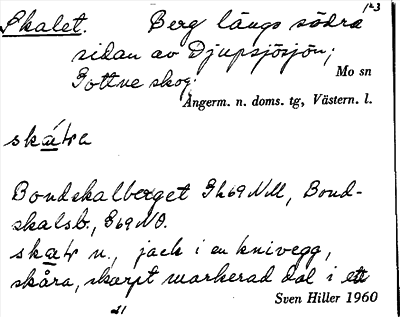 123
Skalet. Berg längs södra
sidan av Djupsjösjön;
Gottne skog.
Mo sn
Ångerm. n. doms. tg, Västern. l.
Bondskalberget Gk69NM, Bond-
skalsb., G69NO.
n., jack i en knivegg,
skåra, skarpt markerad dal i ett
Sven Hiller 1960